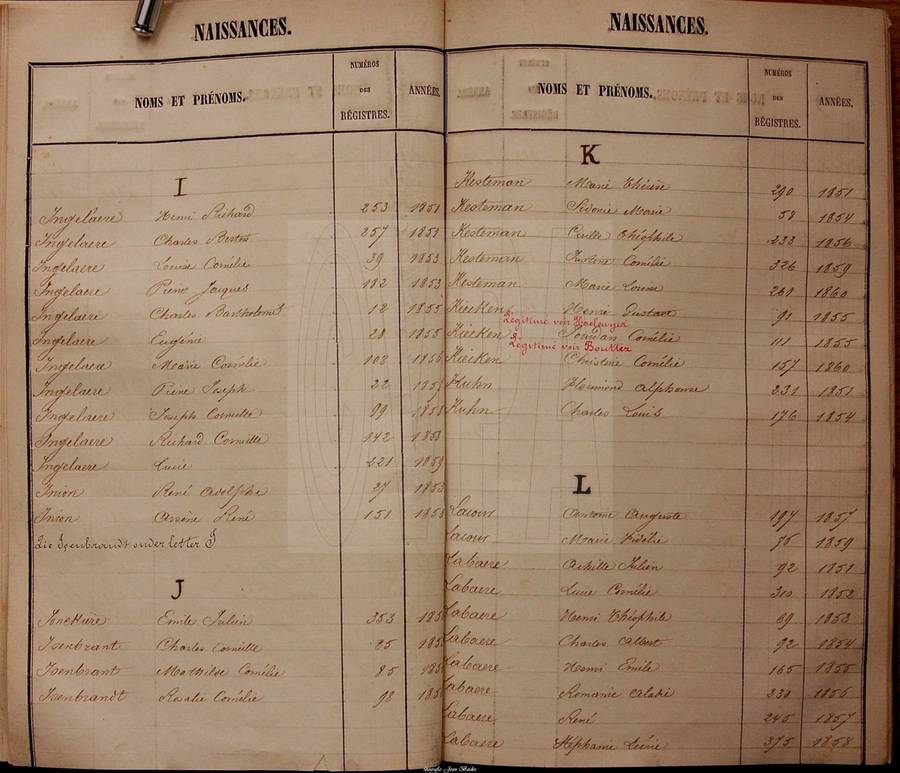 NAISSANCES.
NOMS ET PRÉNOMS. NUMÉROS DES RÉGISTRES. ANNÉES.
I
Ingelaere Henri Richard 253 1851
Ingelaere Charles 257 1851
Ingelaere Louise Cornélie 39 1853
Ingelaere Pierre Jacques 182 1853
Ingelaere Charles Bartholomé 12 1855
Ingelaere Eugénie 28 1855
Ingelaere Marie Cornélie 108 1856
Ingelaere Pierre Joseph 22
Ingelaere Joseph Corneille 99 1858
Ingelaere Richard Corneille 142
Ingelaere Lucie 221 1859
Inion René Adolphe 27 1853
Inion Arsène René 151 1858
Zie Isenbrandt onder letter J
J
Joncküre Emile Julien 353
Isenbrant Charles Corneille 25
Isenbrant Mathilde Cornélie 85
Isenbrandt Rosalie Cornélie 98
NAISSANCES.
NOMS ET PRÉNOMS. NUMÉROS DES RÉGISTRES. ANNÉES.
K
Kesteman Marie Thérèse 290 1851
Kesteman Sidonie Marie 58 1854
Kesteman Cirille Théophile 233 1856
Kesteman Justine Cornélie 326 1859
Kesteman Marie Louise 261 1860
Kiecken Henri Gustave 91 1855
Légitimé voir
Kiecken Cornélie 111 1855
Légitimé voir
Kiecken Christine Cornélie 157 1860
Kuhn Florimond Alphonse 231 1851
Kuhn Charles Louis 176 1854
L
Lacour Antoine Auguste 197 1857
Lacour Marie Fidélie 75 1859
Labaere Achille Julien 92 1851
Labaere Lucie Cornélie 310 1852
Labaere Henri Théophile 69 1853
Labaere Charles Albert 92 1854
Labaere Henri Emile 165 1855
Labaere Romanie 230 1856
Labaere René 245 1857
Labaere Stéphanie 375 1858